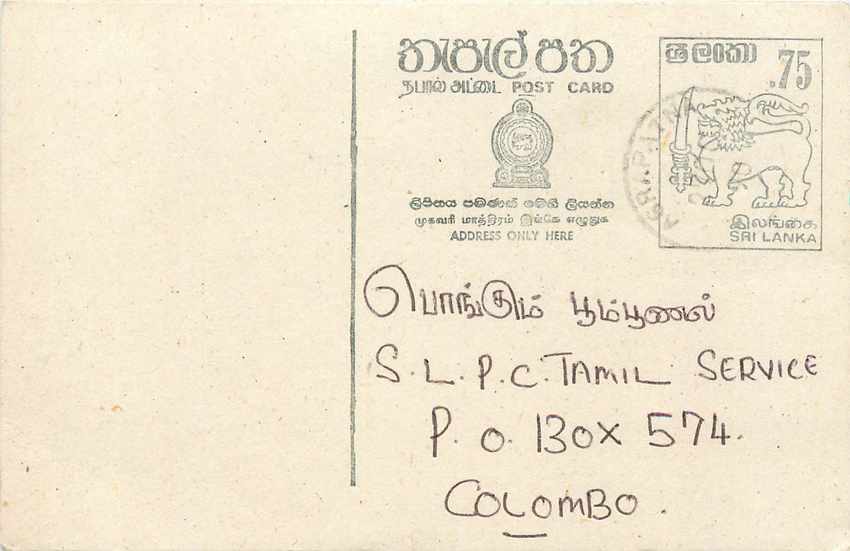 තැපැල් පත
தபால் அட்டை POST CARD
ලිපිනය පමණක් මෙහි ලියන්න
முகவரி மாத்திரம் இங்கே எழுதுக
ADDRESS ONLY HERE
ශ්‍රී ලංකා
.75
இலங்கை
SRI LANKA
AGRAPATNA
பொங்கும் பூம்பூணல்
S. L. P. C. TAMIL SERVICE
P. O. BOX 574.
COLOMBO.